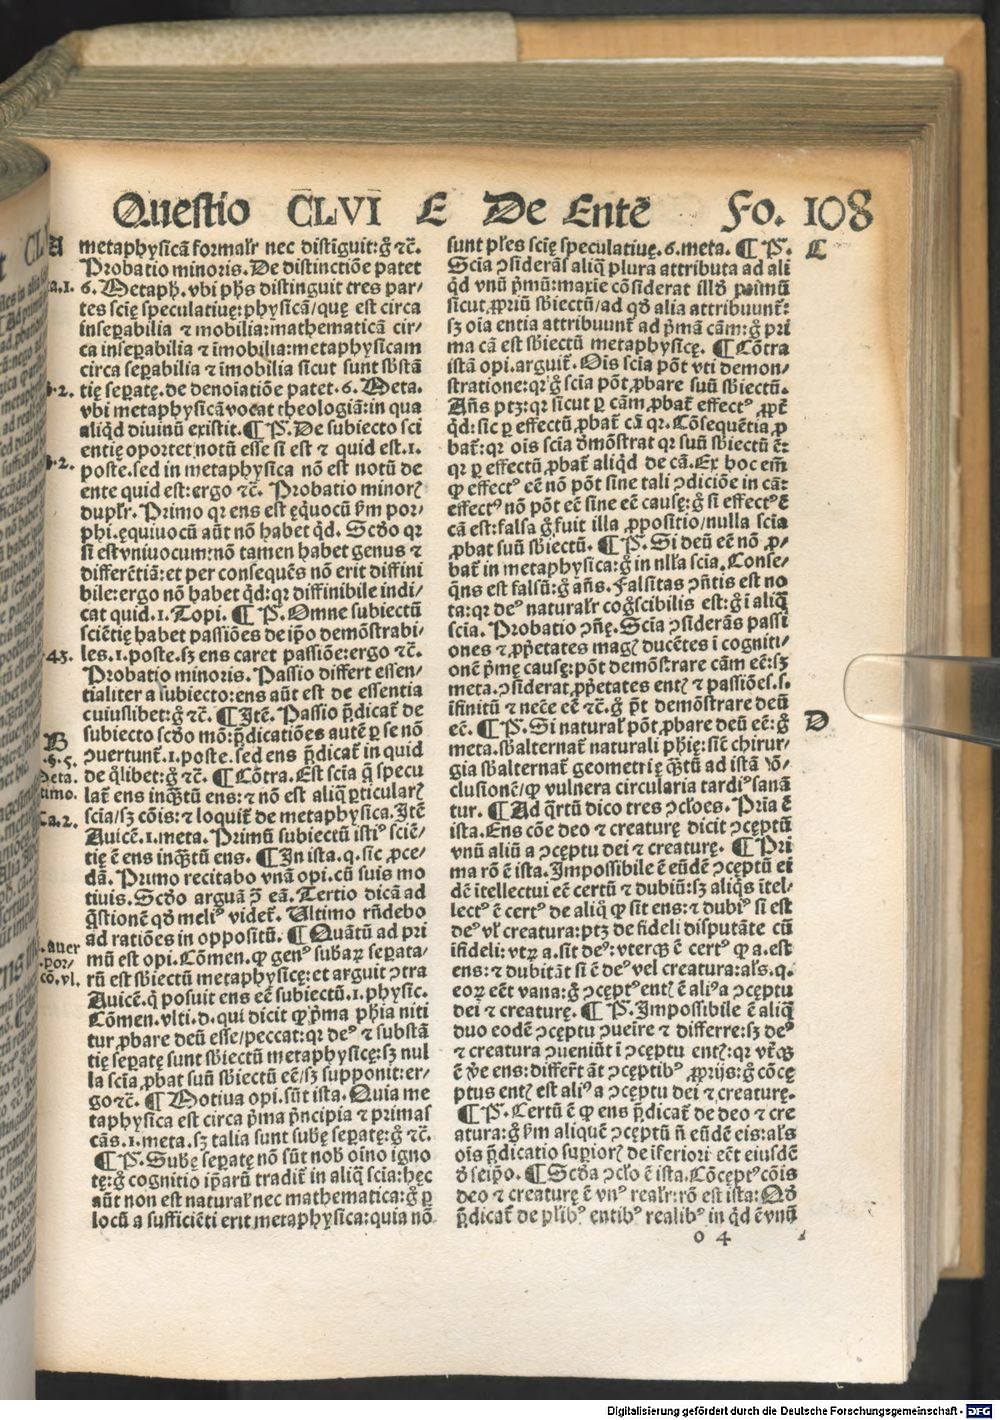 Questio CLVI E De Ente Fo. 108
A metaphysicā formalr̄ nec distīguit: ḡ ⁊c̄.
Probatio minoris. De distinctiōe patet
6. Metaph. vbi phs̄ distinguit tres par/
tes sciē speculatiuę: physicā/quę est circa
inseꝑabilia ⁊ mobilia: mathematicā cir/
ca inseꝑabilia ⁊ īmobilia: metaphysicam
circa seꝑabilia ⁊ īmobilia sicut sunt sb̄stā
tię seꝑatę. de denoīatiōe patet. 6. Meta.
vbi metaphysicā vocat theologiā: in qua
aliqd̄ diuinū existit. ¶ P̄. De subiecto sci
entię oportet notū esse si est ⁊ quid est. 1.
poste. sed in metaphysica nō est notū de
ente quid est: ergo ⁊c̄. Probatio minorꝭ
duplr̄. Primo qr ens est ęq̄uocū ẜm por/
phi. ęquiuocū aūt nō habet qd̄. Scd̄o qr
si est vniuocum: nō tamen habet genus ⁊
differētiā: et per consequēs nō erit diffini
bile: ergo nō habet qd̄: qr diffinibile indi/
cat quid. 1. Topi. ¶ P̄. Omne subiectū
sciētię habet passiōes de ip̄o demōstrabi/
les. 1. poste. sꝫ ens caret passiōe: ergo ⁊c̄.
Probatio minoris. Passio differt essen/
tialiter a subiecto: ens aūt est de essentia
cuiuslibet: ḡ ⁊c̄. ¶ Itē. Passio p̄dicat̄ de
subiecto scd̄o mō: p̄dicatiōes autē ꝑ se nō
ꝯuertunt̄. 1. poste. sed ens p̄dicat̄ in quid
de q̄libet: ḡ ⁊c̄. ¶ Cōtra. Est scīa q̄ specu
lat̄ ens inq̄ꝫtū ens: ⁊ nō est aliq̄ ꝑticularꝭ
scīa/sꝫ cōis: ⁊ loquit̄ de metaphysica. Itē
Auicē. 1. meta. Primū subiectū istiꝰ sciē/
tię ē ens inq̄ꝫtū ens. ¶ In ista. q. sic ꝓce/
dā. Primo recitabo vnā opi. cū suis mo
tiuis. Scd̄o arguā ꝯ̄ eā. Tertio dicā ad
q̄stionē qd̄o meliꝰ videt̄. Ultimo rn̄debo
ad ratiōes in oppositū. ¶ Quātū ad pri
mū est opi. Cōmen. ꝙ genꝰ subaꝝ seꝑata/
rū est sb̄iectū metaphysicę: et arguit ꝯtra
Auicē. q̄ posuit ens eē subiectū. 1. physic.
Cōmen. vlti. d. qui dicit ꝙ p̄ma ph̄ia niti
tur ꝓbare deū esse/peccat: qr deꝰ ⁊ substā
tię seꝑatę sunt sb̄iectū metaphysicę: sꝫ nul
la scīa ꝓbat suū sb̄iectū eē/sꝫ supponit: er/
go ⁊c̄. ¶ Motiua opi. sūt ista. Quia me
taphysica est circa p̄ma p̄ncipia ⁊ primas
cās. 1. meta. sꝫ talia sunt subę seꝑatę: ḡ ⁊c̄.
¶ P̄. Subę seꝑatę nō sūt nob̄ oīno igno
tę: ḡ cognitio ip̄arū tradit̄ in aliq̄ scīa: hęc
aūt non est naturalr̄ nec mathematica: ḡ ꝑ
locū a sufficiēti erit metaphysica: quia nō
a. 1.
p. 2.
p. 2.
45.
B
.§. 5.
Meta.
timo.
Ca. 2.
. auer
. por/
cō. vl.
sunt ptēs sciē speculatiuę. 6. meta. ¶ P̄. C
Scīa ꝯsiderās aliq̄ plura attributa ad ali
qd̄ vnū p̄mū: maxīe cōsiderat illd̄ primū
sicut ꝓpriū sb̄iectū/ad qd̄o alia attribuunt̄:
sꝫ oīa entia attribuunt̄ ad p̄mā cām: ḡ pri
ma cā est sb̄iectū metaphysicę. ¶ Cōtra
istā opi. arguit̄. Oīs scīa pōt vti demon/
stratione: qr ḡ scīa pōt ꝓbare suū sb̄iectū.
Añs ptꝫ: qr sicut ꝑ cām ꝓbat̄ effectꝰ ꝓpt̄
qd̄: sic ꝑ effectū ꝓbat̄ cā qr. Cōsequētia ꝓ
bat̄: qr oīs scīa d̄mōstrat qr suū sb̄iectū ē:
qr ꝑ effectū ꝓbat̄ aliqd̄ de cā. Ex hoc em̄
ꝙ effectꝰ eē nō pōt sine tali ꝯdiciōe in cā:
effectꝰ nō pōt eē sine eē causę: ḡ si effectꝰ ē
cā est: falsa ḡ fuit illa ꝓpositio/nulla scīa
ꝓbat suū sb̄iectū. ¶ P̄. Si deū eē nō ꝓ/
bat̄ in metaphysica: ḡ in nlľa scīa. Conse/
q̄ns est falsū: ḡ añs. Falsitas ꝯñtis est no
ta: qr deꝰ naturalr̄ cog̃scibilis est: ḡ ī aliq̄
scīa. Probatio ꝯñę. Scīa ꝯsiderās passi
ones ⁊ ꝓp̄etates magꝭ ducētes ī cogniti/
onē p̄mę causę: pōt demōstrare cām eē: sꝫ
meta. ꝯsiderat ꝓp̄etates entꝭ ⁊ passiōes. s.
īfinitū ⁊ nec̄e eē ⁊c̄. ḡ pt̄ demōstrare deū
eē. ¶ P̄. Si naturaľ pōt ꝓbare deū eē: ḡ D
meta. sb̄alternat̄ naturali ph̄ię: sic̄ chirur/
gia sb̄alternat̄ geometrię q̄ꝫtū ad istā ꝯ̄/
clusionē/ꝙ vulnera circularia tardiꝰ sanā
tur. ¶ Ad q̄rtū dico tres ꝯcľoēs. Pria ē
ista. Ens cōe deo ⁊ creaturę dicit ꝯceptū
vnū aliū a ꝯceptu dei ⁊ creaturę. ¶ Pri
ma rō ē ista. Impossibile ē eūdē ꝯceptū ei
dē itellectui eē certū ⁊ dubiū: sꝫ aliq̄s itel/
lectꝰ ē certꝰ de aliq̄ ꝙ sit ens: ⁊ dubiꝰ si est
deꝰ vľ creatura: ptꝫ de fideli disputāte cū
īfideli: vtꝝ a. sit deꝰ: vterqꝫ ē certꝰ ꝙ a. est
ens: ⁊ dubitāt si ē deꝰ vel creatura: aľs. q̄.
eoꝝ eēt vana: ḡ ꝯceptꝰ entꝭ ē aliꝰ a ꝯceptu
dei ⁊ creaturę. ¶ P̄. Impossibile ē aliq̄
duo eodē ꝯceptu ꝯueīre ⁊ differre: sꝫ deꝰ
⁊ creatura ꝯueniūt ī ꝯceptu entꝭ: qr vt̄qꝫ
ē v̄e ens: differt̄ āt ꝯceptibꝰ ꝓprijs: ḡ cōce
ptus entꝭ est aliꝰ a ꝯceptu dei ⁊ creaturę.
¶ P̄. Certū ē ꝙ ens p̄dicat̄ de deo ⁊ cre
atura: ḡ ẜm aliquē ꝯceptū ñ eūdē eis: aľs
oīs p̄dicatio suꝑiorꝭ de īferiori eēt eiusdē
d̄ seip̄o. ¶ Scd̄a ꝯcľo ē ista. Cōceptꝰ cōis
deo ⁊ creaturę ē vnꝰ realr̄: rō est ista: Qd̄
p̄dicat̄ de pľibꝰ entibꝰ realibꝰ in qd̄ ē vnū
o 4
Digitalisierung gefördert durch die Deutsche Forschungsgemeinschaft - DFG